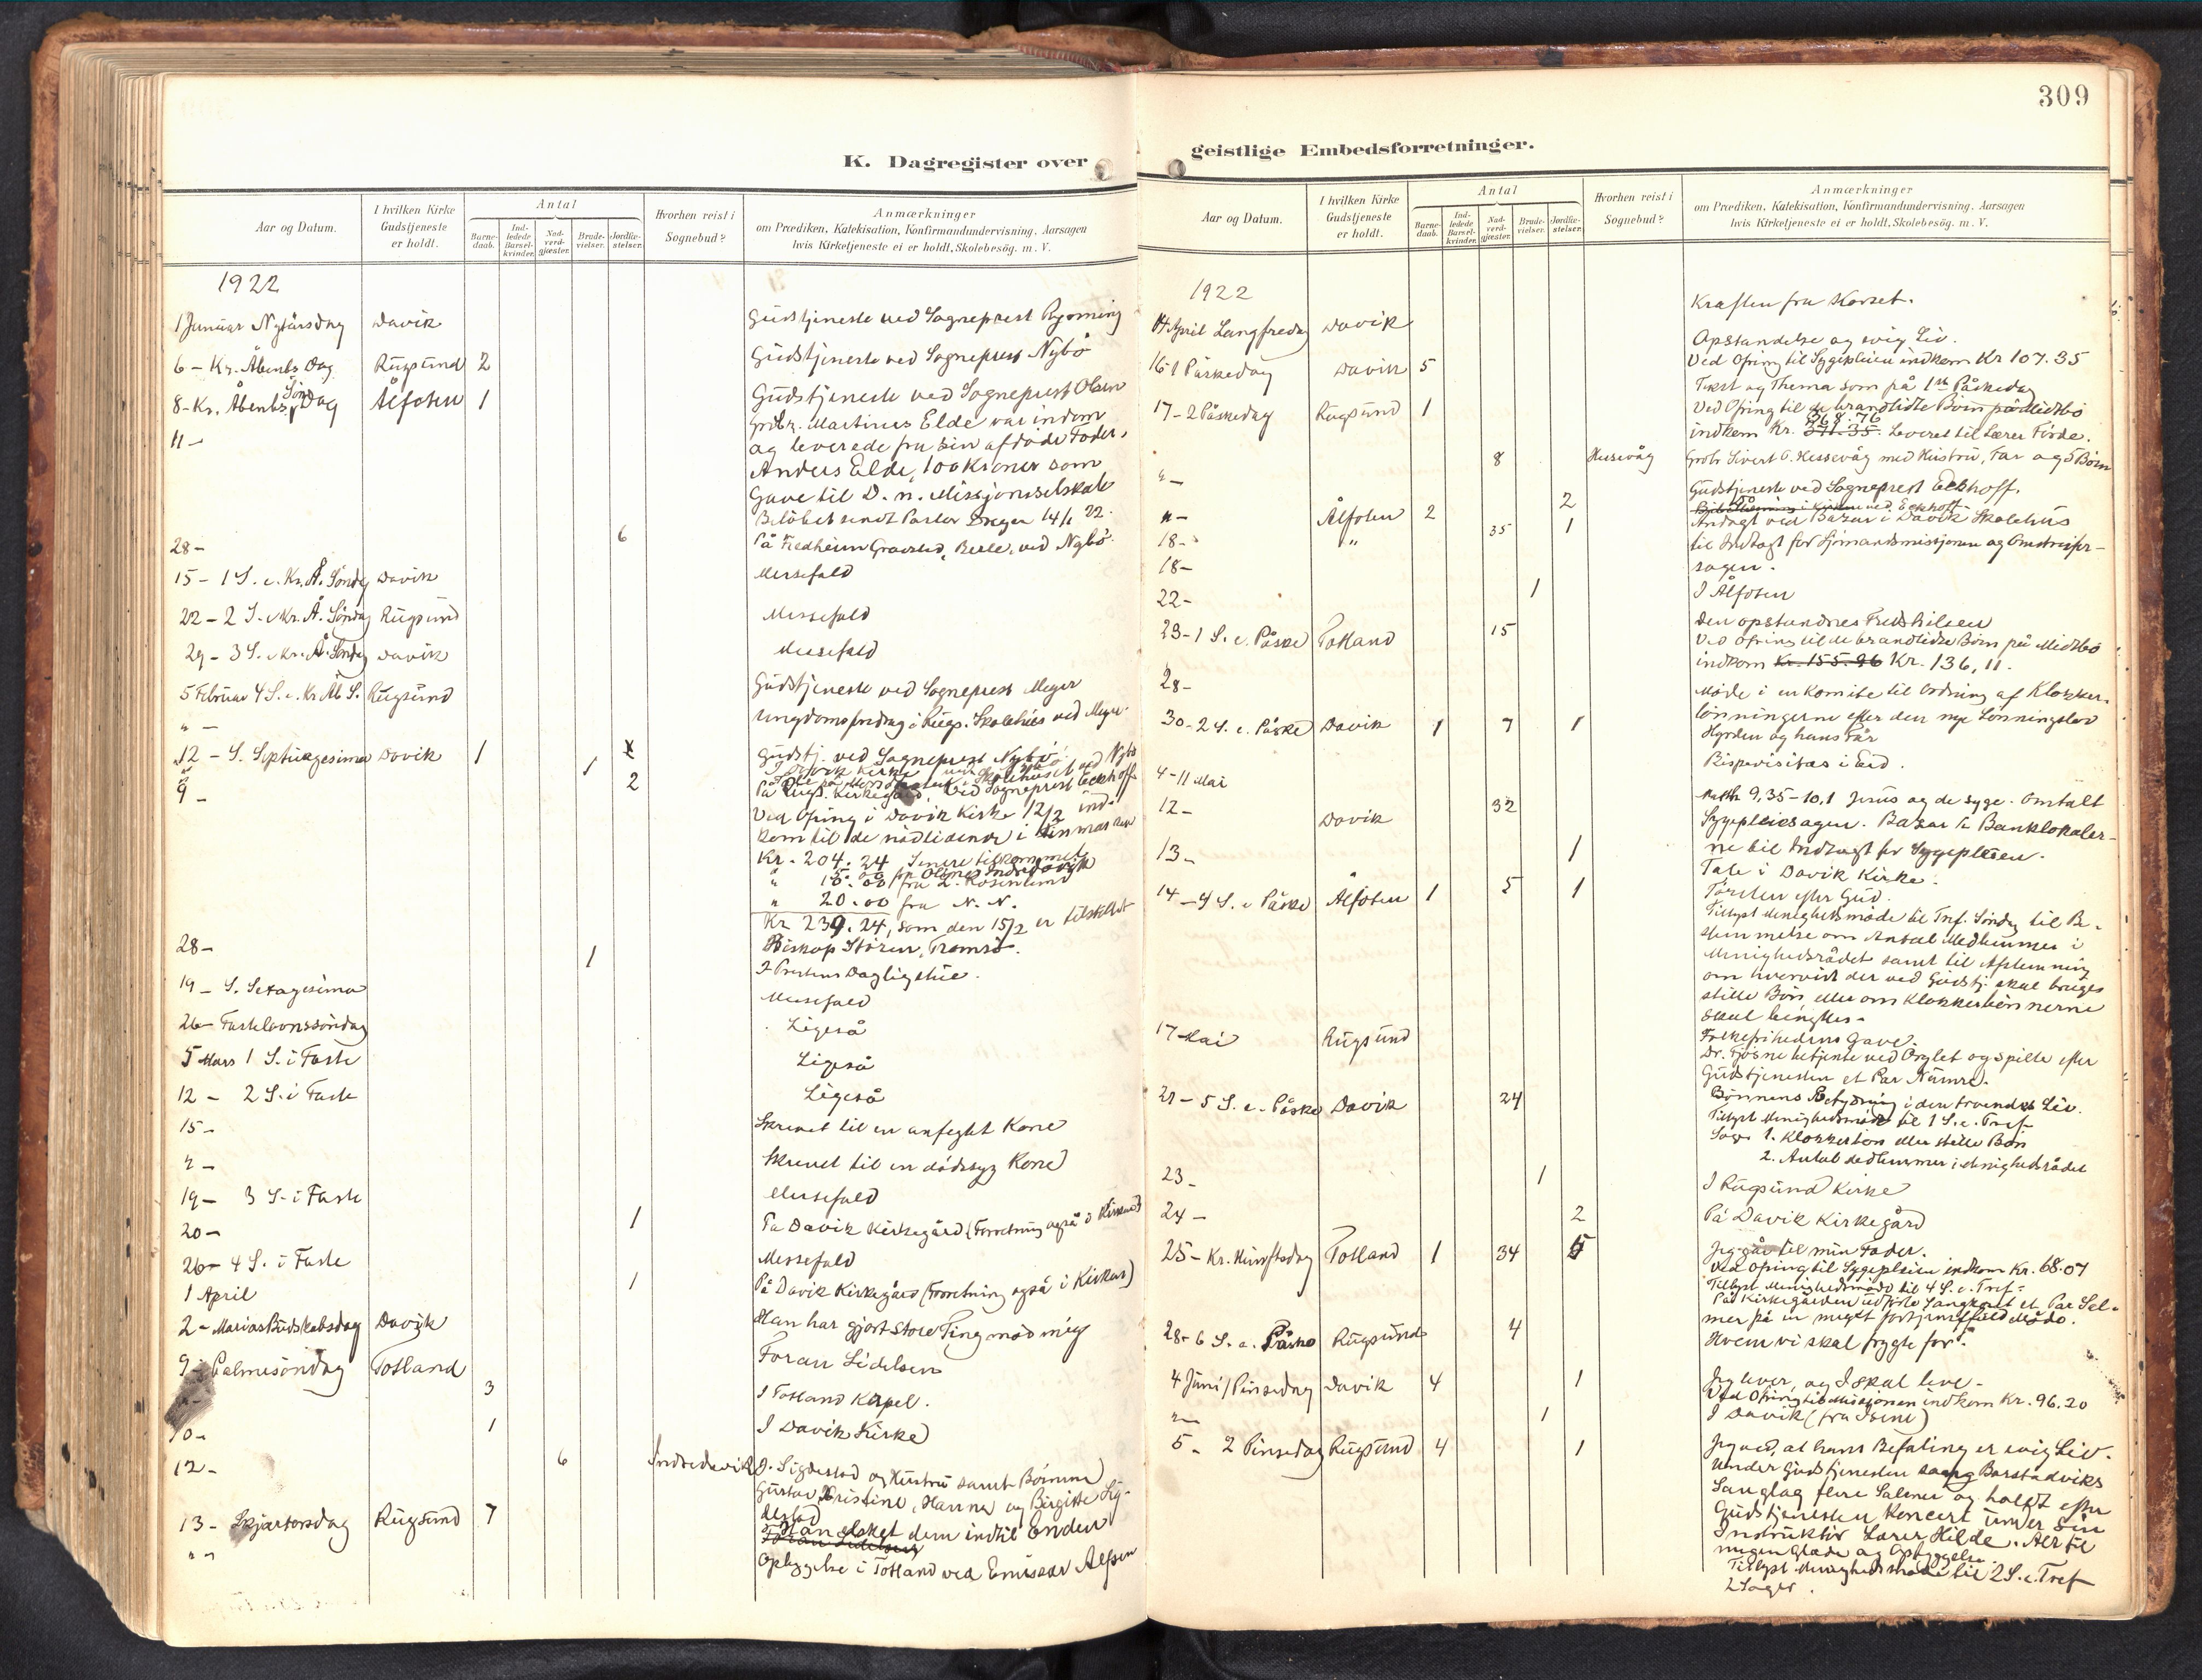 309
K. Dagregister over
geistlige Embedsforretninger.
Aar og Datum.
I hvilken Kirke Gudstjeneste er holdt.
Antal
Barne-daab.
Ind-ledede Barsel-kvinder.
Nad-verd-gjæster.
Brude-vielser.
Jordfæ-stelser.
Hvorhen reist i Sognebud?
Anmærkninger
om Prædiken, Katekisation, Konfirmandundervisning. Aarsagen
hvis Kirketjeneste ei er holdt, Skolebesög. m. V.
1922
1 Januar Nytårsdag Davik Gudstjeneste ved Sogneprest
6 – Kr. Åbenb. Dag Rugsund 2 Gudstjeneste ved Sogneprest Nybö
8 – Kr. Åbenb. Sönd Dag Ålfoten 1 Gudstjeneste ved Sogneprest Olsen
11 – Grdbr. Martinus Elde var indom
og leverede fra sin afdöde Fader,
Anders Elde, 100 Kroner som
Gave til D. n. Missjonsselskab
Belöbet sendt Pastor 14/1 22.
28 – 6 På Fredheim Gravsted, Berle, ved Nybö
15 – 1 S. e. Kr. Å. Söndag Davik Messefald
22 – 2 S. e. Kr. Å. Söndag Rugsund Messefald
29 – 3 S. e. Kr. Å. Söndag Davik Messefald
5 Februar 4 S. e. Kr. Åb. S. Rugsund Gudstjeneste ved Sogneprest Meyer
" – Ungdomsforedrag i Rugs. Skolehus ved Meyer
12 – S. Septuagesima Davik 1 Gudstj. ved Sogneprest Nybö
1 I Davik Kirke ved
9 – 2 På Rugs. Kirkegård, ved Sogneprest Eckhoff
Ved Ofring i Davik Kirke 12/2 ind-
kom til de nödlidende i Finmarken
Kr. 204.24 Senere tilkommet
" 15.00 fra
" 20.00 fra N. N.
Kr 239.24, som den 15/2 er tilstillet
28 – Biskop Stören, Tromsö.
1 I Prestens Dagligstue.
19 – S. Sexagesima Messefald
26 – Fastelavnssöndag Ligeså
5 Mars 1 S. i Faste Ligeså
12 – 2 S. i Faste Ligeså
15 – Skrevet til en anfegtet Kone
" – Skrevet til en dödssyg Kone
19 – 3 S. i Faste Messefald
20 – 1 På Davik Kirkegård (Forretning også i Kirken)
26 – 4 S. i Faste Messefald
1 April 1 På Davik Kirkegård (Forretning også i Kirken)
2 – Marias Budskabsdag Davik Han har gjort store Ting mod mig
9 – Palmesöndag Totland Foran Lidelsen
3 I Totland Kapel.
10 – 1 I Davik Kirke
12 – 6 Indredavik J. Sigdestad og Hustru samt Börnene
Gustav, Kristine, Hanna og Birgitte Sig-
destad
13 – Skjærtorsdag Rugsund 7 Han elsket dem indtil Enden
Foran Lidelsen
" " Opbyggelse i Totland ved Emissær
1922
Kraften fra Korset.
14 April Langfredag Davik
Opstandelse og evig Liv.
16 – 1 Påskedag Davik 5 Ved Ofring til Sygepleien indkom Kr 107.35
Tekst og Thema som på 1ste Påskedag
17 – 2 Påskedag Rugsund 1 Ved Ofring til de brandlidte Börn på Midtbö
indkom Kr. 371.35. 368.76 Leveret til Lærer Förde.
8 Hessevåg Grdbr Sivert O. Hessevåg med Hustru, Far og 5 Börn
" – Gudstjeneste ved Sogneprest Eckhoff.
" – Ålfoten 2 2 Andagt ved Bazar i Davik Skolehus
18 – " 35 1 til Indtægt for Sjömandsmissjonen og
18 – sagen.
22 – 1 I Ålfoten
23 – 1 S. e. Påske Totland 15 Den opstandnes Fredshilsen
Ved Ofring til de brandlidte Börn på Midtbö
indkom Kr. 155.96 Kr. 136,11.
28 – Möde i en Komite til Ordning af Klokker-
lönningerne efter den nye Lönningslov
30 – 2 S. e. Påske Davik 1 7 1 Hyrden og hans Får
4 – 11 Mai Bispevisitas i Eid.
12 – Davik 32 Matth 9,35–10,1 Jesus og de syge. Omtalt
Sygepleiesagen. Bazar i Banklokaler-
ne til Indtægt for Sygepleien.
13 – 1 Tale i Davik Kirke.
14 – 4 S. e. Påske Ålfoten 1 5 1 Törsten efter Gud.
Tillyst Menighedsmöde til Tref. Söndag til Be-
stemmelse om Antal Medlemmer i
Menighedsrådet samt til Afstemning
om hvorvidt der ved Gudstj. skal bruges
stille Bön eller om Klokkerbönnerne
skal benyttes.
17 Mai Rugsund Folkefrihedens Gave.
Dr. Fjösne betjente ved Orglet og spilte efter
Gudstjenesten et Par Numre.
21 – 5 S. e. Påske Davik 24 Bönnens Betydning i den troendes Liv.
Tillyst Menighedsmöde til 1 S. e. Tref.
Sager 1. Klokkerbön eller stille Bön
2. Antal Medlemmer i Menighedsrådet
23 – 1 I Rugsund Kirke
24 – 2 På Davik Kirkegård
25 – Kr. Himfartsdag Totland 1 34 5 Jeg går til min Fader.
Ved Ofring til Sygepleien indkom Kr. 68.07
Tillyst Menighedsmöde til 4 S. e. Tref.
På Kirkegården udförte Sangkoret et Par Sal-
mer på en meget fortjenstfuld Måde.
28 – 6 S. e. Påske Rugsund 4 Hvem vi skal frygte for.
4 Juni 1 Pinsedag Davik 4 1 Jeg lever, og I skal leve.
Ved Ofring til Missjonen indkom Kr. 96,20
" – 1 I Davik (fra Isene)
5 – 2 Pinsedag Rugsund 4 1 Jeg ved, at hans Befaling er evig Liv.
Under Gudstjenesten sang Barstadviks
Sanglag flere Salmer og holdt efter
Gudstjenesten Koncert under sin
Instruktör Lærer Hilde. Alt til
megen Glæde og Opbyggelse.
Tillyst Menighedsmöde til 2 S. e. Tref
2 Sager.